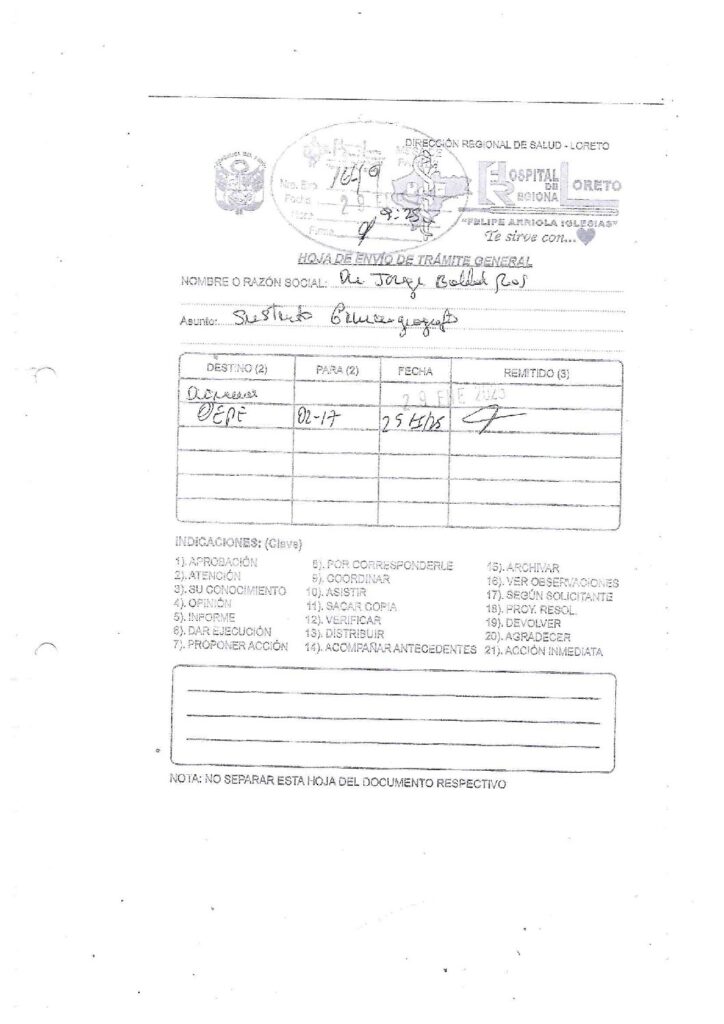 DIRECCIÓN REGIONAL DE SALUD - LORETO
HOSPITAL
DE
REGIONAL
LORETO
"FELIPE ARRIOLA IGLESIAS"
Te sirve con...
Nro. Exp
Fecha
29 ENE
Hora 9:25
Firma
HOJA DE ENVÍO DE TRÁMITE GENERAL
NOMBRE O RAZÓN SOCIAL: Dr Jorge
Asunto: Sustento
DESTINO (2) PARA (2) FECHA REMITIDO (3)
29 ENE 2025
OEPE 02-17
INDICACIONES: (Clave)
1). APROBACIÓN
2). ATENCIÓN
3). SU CONOCIMIENTO
4). OPINIÓN
5). INFORME
6). DAR EJECUCIÓN
7). PROPONER ACCIÓN
8). POR CORRESPONDERLE
9). COORDINAR
10). ASISTIR
11). SACAR COPIA
12). VERIFICAR
13). DISTRIBUIR
14). ACOMPAÑAR ANTECEDENTES
15). ARCHIVAR
16). VER OBSERVACIONES
17). SEGÚN SOLICITANTE
18). PROY. RESOL.
19). DEVOLVER
20). AGRADECER
21). ACCIÓN INMEDIATA
NOTA: NO SEPARAR ESTA HOJA DEL DOCUMENTO RESPECTIVO